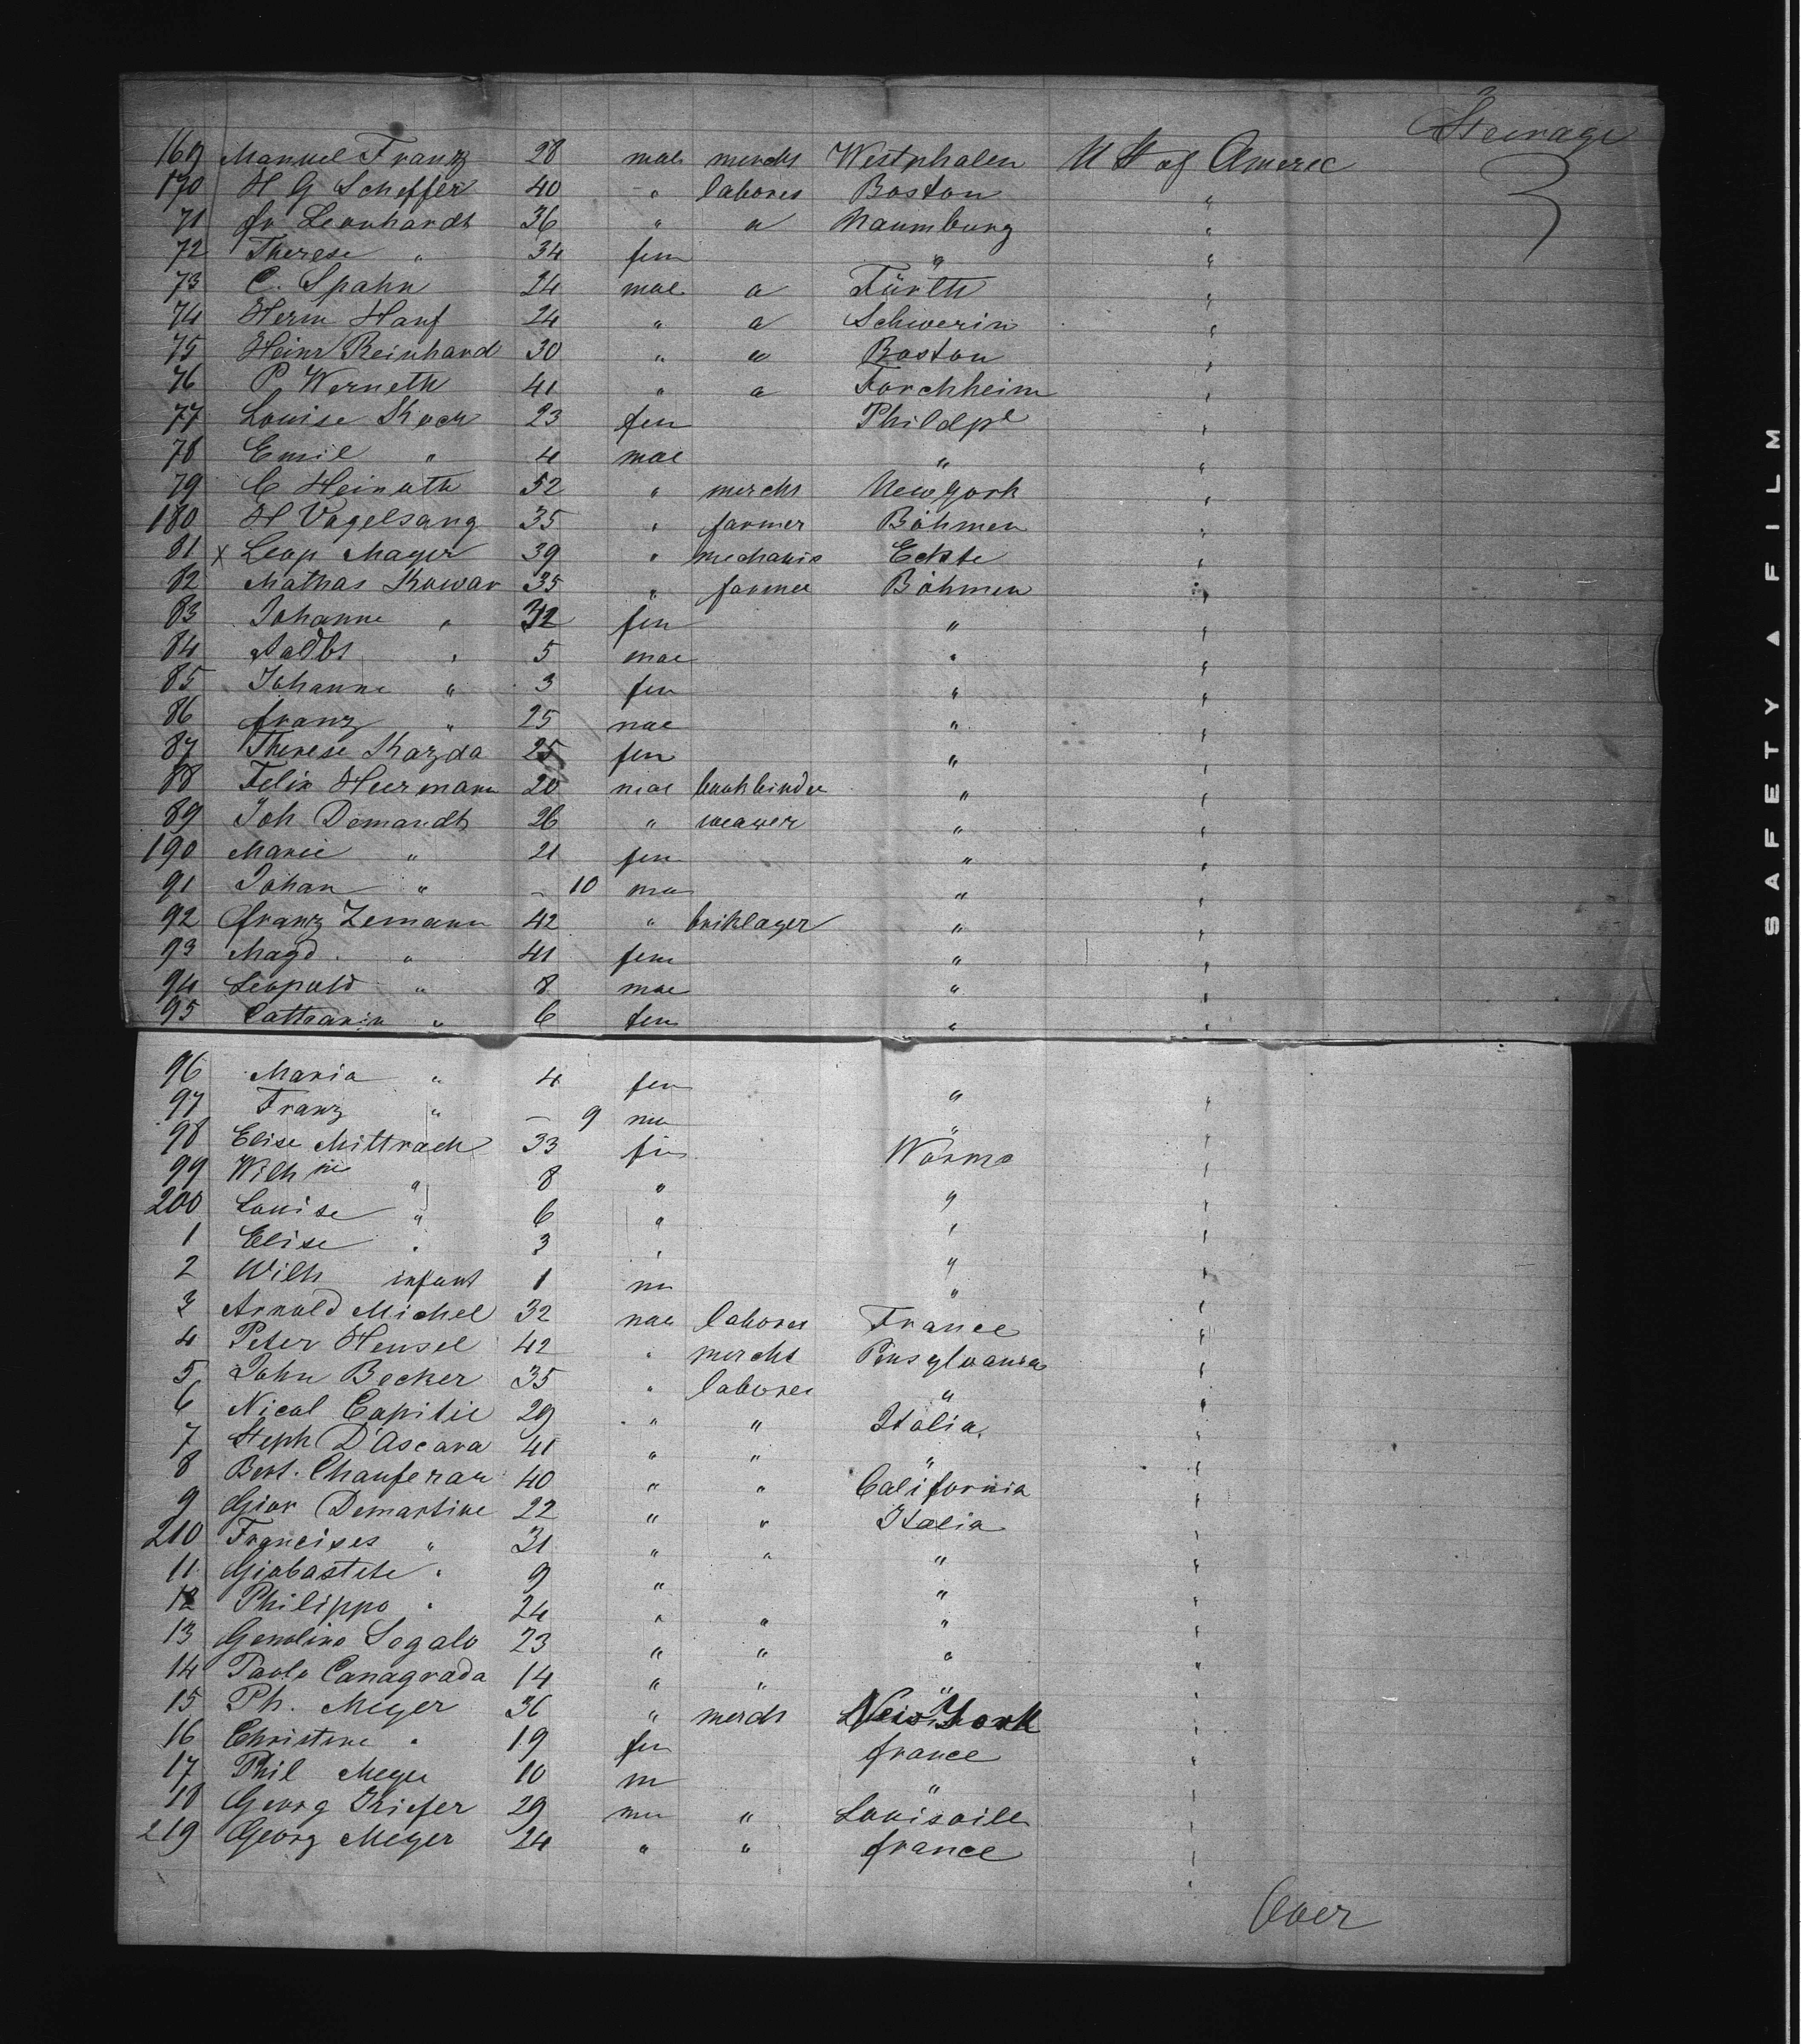 Steerage
169 Manuel Franz 28 mal merchs Westphalen U St of Americ
170 H G Scheffer 40 " labores Boston "
71 fr Leonhardt 36 " a Naumburg "
72 Therese " 34 fem " "
73 C. Spahn 24 mal a Fürth "
74 Herm Hanf 24 " a Schwerin "
75 Heinr Reinhard 30 " a Boston "
76 P. Werneth 41 " a Forchheim "
77 Louise Koch 23 fem Phildpl "
78 Emil " 4 mal " "
79 C Heinath 52 " merchs New York "
180 H Vogelsang 35 " farmer Böhmen "
81 x Leop Mayer 39 " mechanic Eckte "
82 Mathas Kowar 35 " farmer Böhmen "
83 Johanne " 32 fem " "
84 " 5 mal " "
85 Johanne " 3 fem " "
86 franz " 25 mal " "
87 Therese Kazda 25 fem " "
88 Felix Heermann 20 mal bookbinder " "
89 Joh Demandt 26 " weawer " "
190 Marie " 21 fem " "
91 Johan " – 10 ma " "
92 franz Zemann 42 " briklager " "
93 Magd. " 41 fem " "
94 Leopold " 8 mal " "
95 Cattarin " 6 fem " "
96 Maria " 4 fem " "
97 Franz " – 9 ma " "
98 Elise Mittrach 33 fem Worms "
99 Wilhme " 8 " " "
200 Louise " 6 " " "
1 Elise " 3 " " "
2 Wilh infant 1 m " "
3 Arnold Michel 32 mal labores France "
4 Peter Hensel 42 " merchs Pensylvania "
5 John Becker 35 " labores " "
6 Nicol Capitie 29 " " Italia "
7 Steph D'Ascara 41 " " " "
8 Bert. Chauferau 40 " " California "
9 Giov Demartine 22 " " Italia "
210 Francises " 31 " " " "
11 Giobastete " 9 " " "
12 Philippo " 24 " " " "
13 Genolino Segalo 23 " " " "
14 Paolo Canagrada 14 " " " "
15 Ph. Meyer 36 " merch New York "
16 Christine " 19 fem france "
17 Phil Meyer 10 m " "
18 Georg Kiefer 29 ma " Louisville "
219 Georg Meyer 24 " " france "
Over
SAFETY ▲ FILM